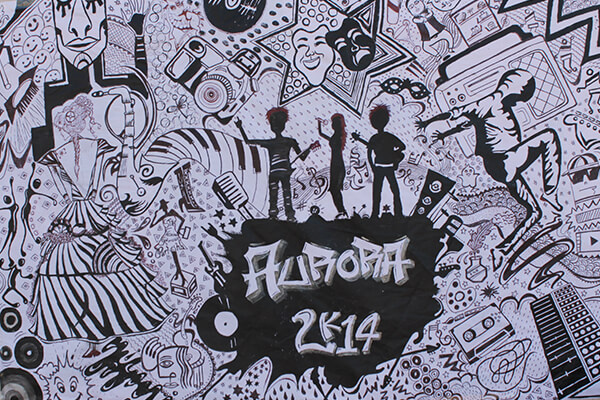 AURORA
2K14